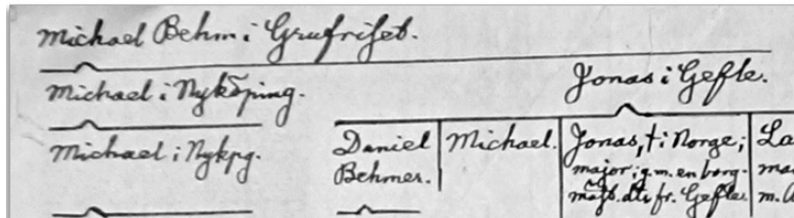 Michael Behm i Grufriset.
Michael i Nyköping.
Jonas i Gefle.
Michael i Nykpg.
Daniel
Behmer.
Michael.
Jonas, † i Norge;
major; g.m. en borg-
dtr fr. Gefle.
La
m.